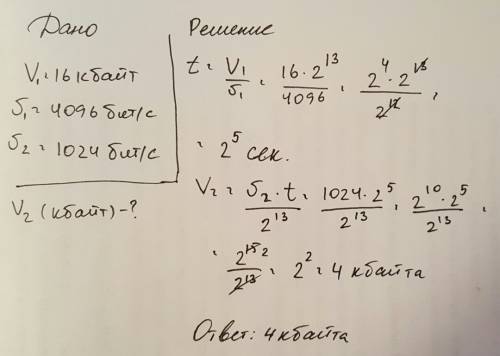 Дано
V₁ = 16 кбайт
S₁ = 4096 бит/с
S₂ = 1024 бит/с
V₂ (кбайт) - ?
Решение
t = V₁/S₁ = 16 · 2¹³/4096 = 2⁴ · 2¹³/2¹² =
= 2⁵ сек.
V₂ = S₂ · t/2¹³ = 1024 · 2⁵/2¹³ = 2¹⁰ · 2⁵/2¹³ =
= 2¹⁵ ²/2¹³ = 2² = 4 кбайта
Ответ: 4 кбайта